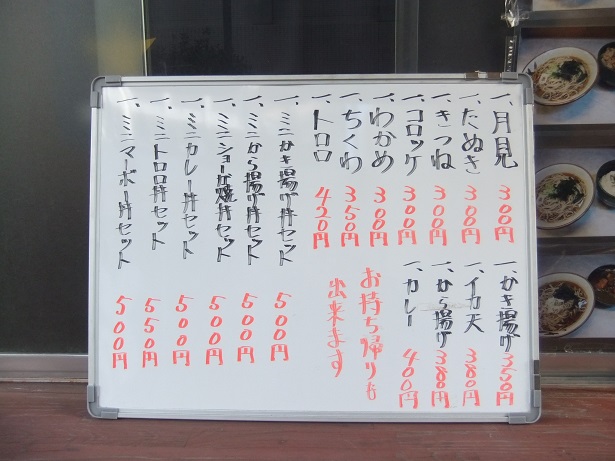 一、月見 300円
一、たぬき 300円
一、きつね 300円
一、コロッケ 300円
一、わかめ 300円
一、ちくわ 350円
一、トロロ 420円
一、かき揚げ 350円
一、イカ天 380円
一、から揚げ 380円
一、カレー 400円
お持ち帰りも
出来ます
一、ミニかき揚げ丼セット 500円
一、ミニから揚げ丼セット 500円
一、ミニショーガ焼丼セット 500円
一、ミニカレー丼セット 500円
一、ミニトロロ丼セット 550円
一、ミニマーボー丼セット 500円